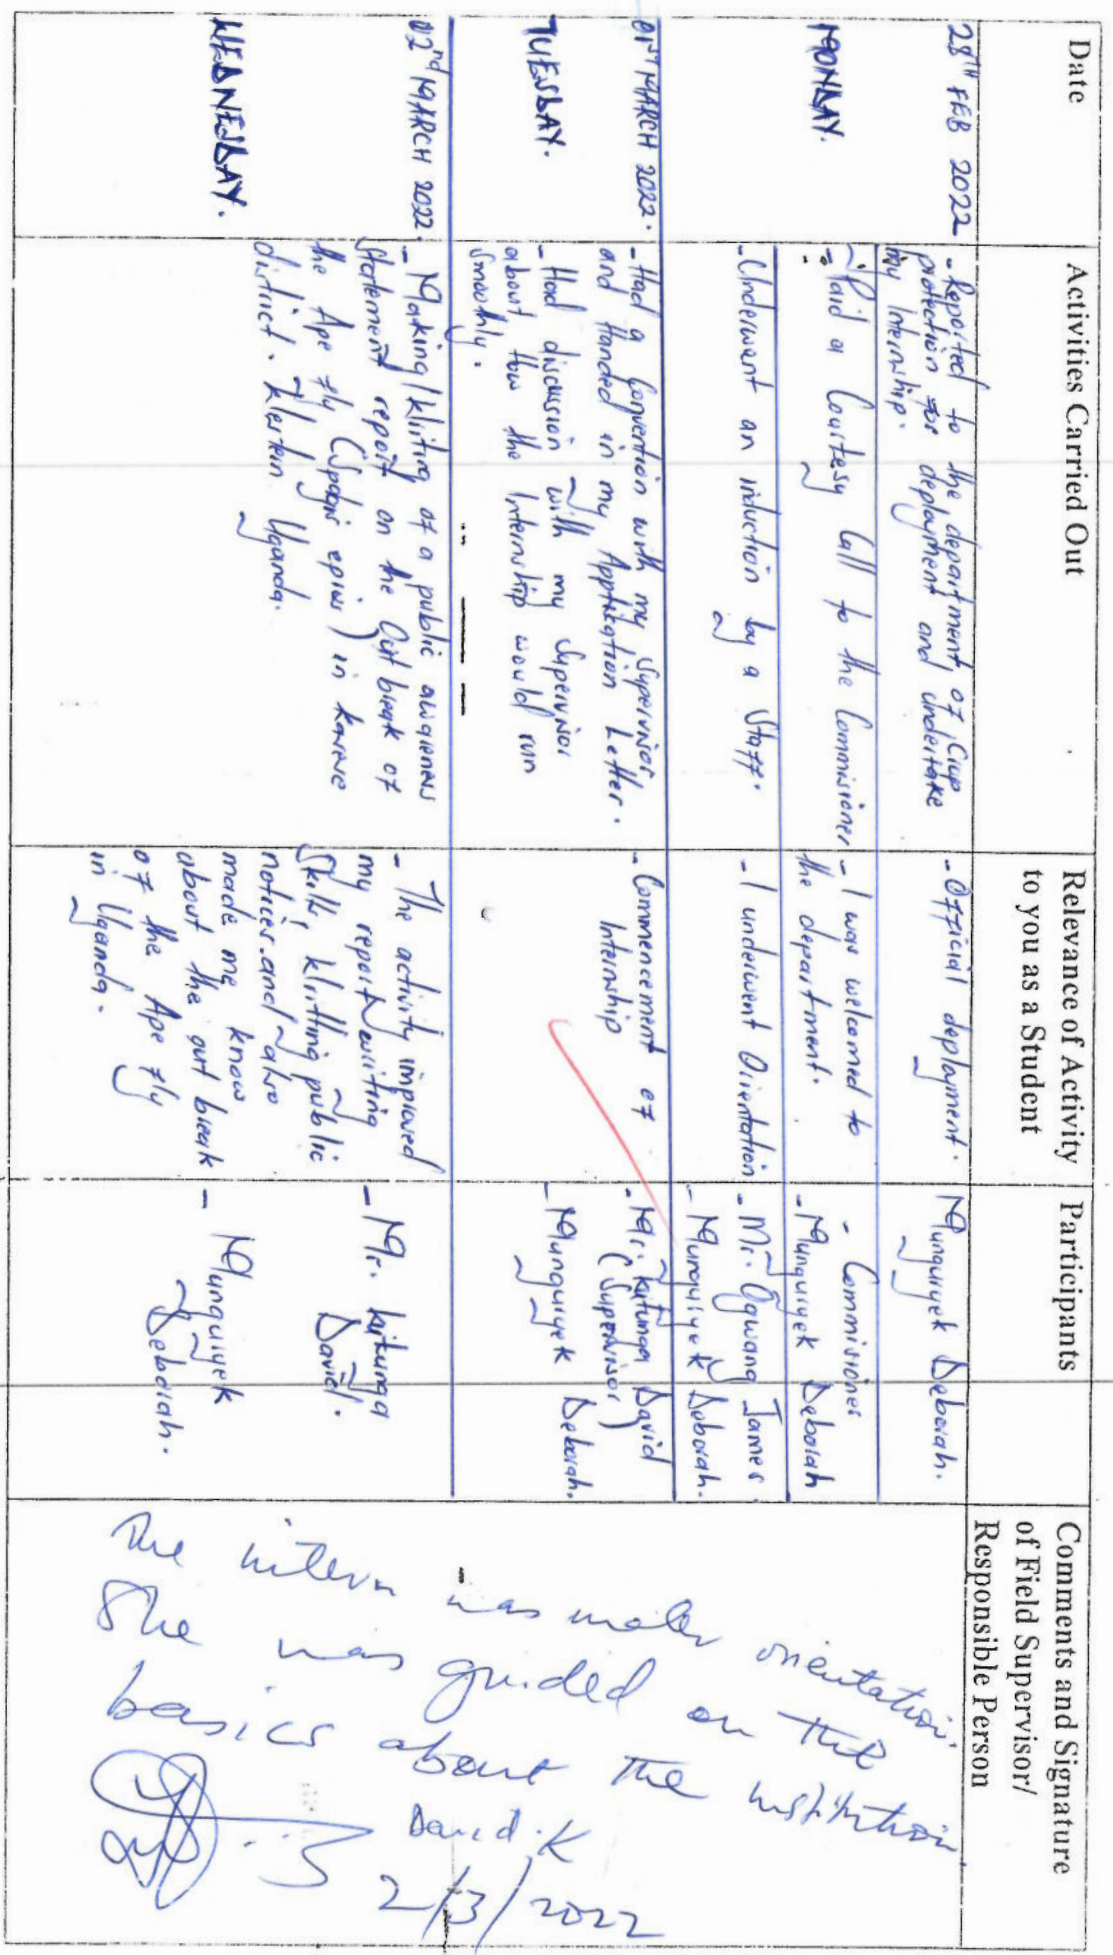 Date
Activities Carried Out
Relevance of Activity
to you as a Student
Participants
Comments and Signature
of Field Supervisor/
Responsible Person
28TH FEB 2022
MONDAY.
- Reported to the department of Crop
protection for deployment and undertake
my Internship.
- Official deployment.
Munguiyek Deborah.
- Paid a Courtesy Call to the Commissioner
- I was welcomed to
the department.
- Commissioner
- Munguiyek Deborah
- Underwent an induction by a Staff.
- I underwent Orientation
- Mr. Ogwang James.
- Munguiyek Deborah.
01ST MARCH 2022.
TUESDAY.
- Had a Convention with my Supervisor
and Handed in my Application Letter.
- Had discussion with my Supervisor
about how the Internship would run
Smoothly.
- Commencement of
Internship
- Mr. Kitunga David
(Supervisor)
- Munguiyek Deborah.
02nd MARCH 2022.
WEDNESDAY.
- Making/Writing of a public awareness
Statement report on the Out break of
the Ape fly (Spalgis epius) in
district. Western Uganda.
- The activity improved
my report writing
Skills, Writting public
notices and also
made me know
about the out break
of the Ape fly
in Uganda.
- Mr. Kitunga
David.
- Munguiyek
Deborah.
The intern was orientation.
She was guided on the
basics about the institution.
David.K
2/3/2022